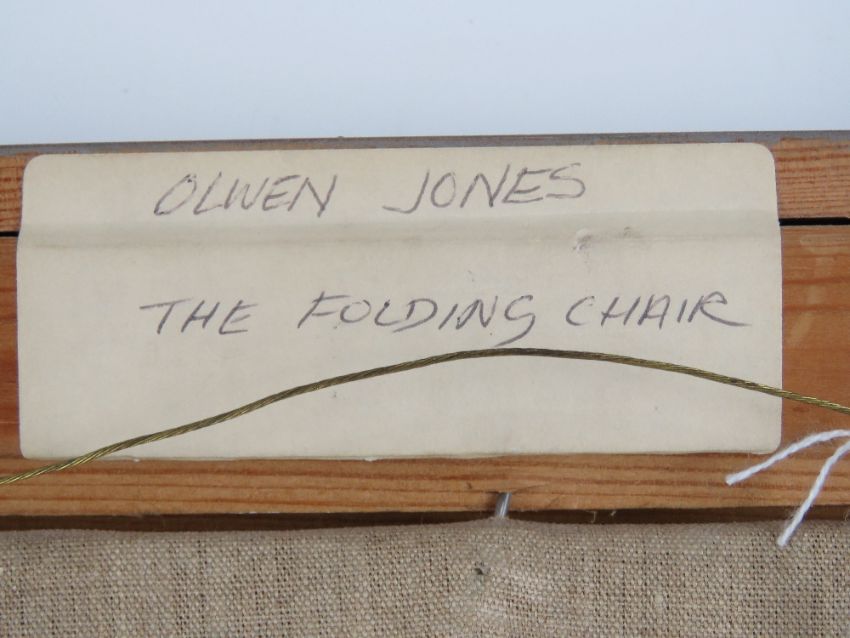 OLWEN JONES
THE FOLDING CHAIR